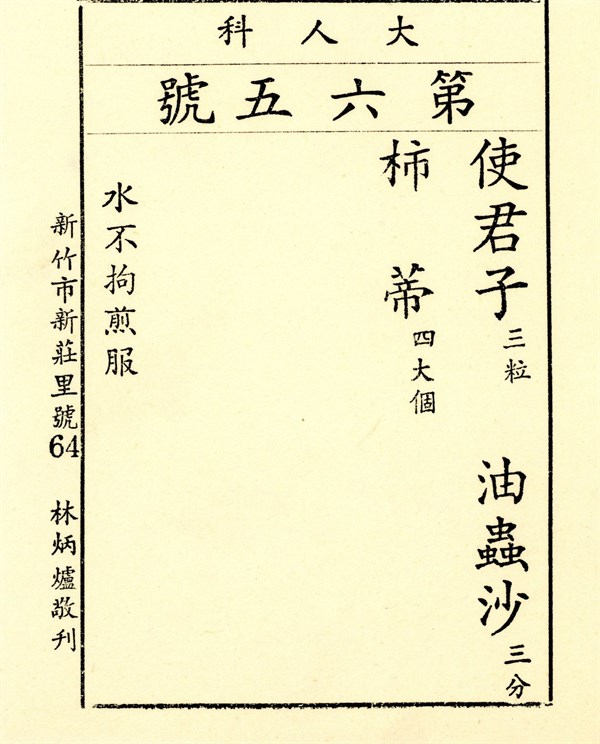 大人科
第六五號
使君子三粒 油蟲沙三分
柿蒂四大個
水不拘煎服
新竹市新莊里號64 林炳爐敬刋